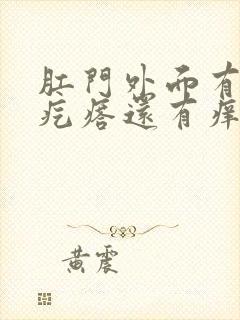 肛門外面有
疙瘩還有痒
黄震